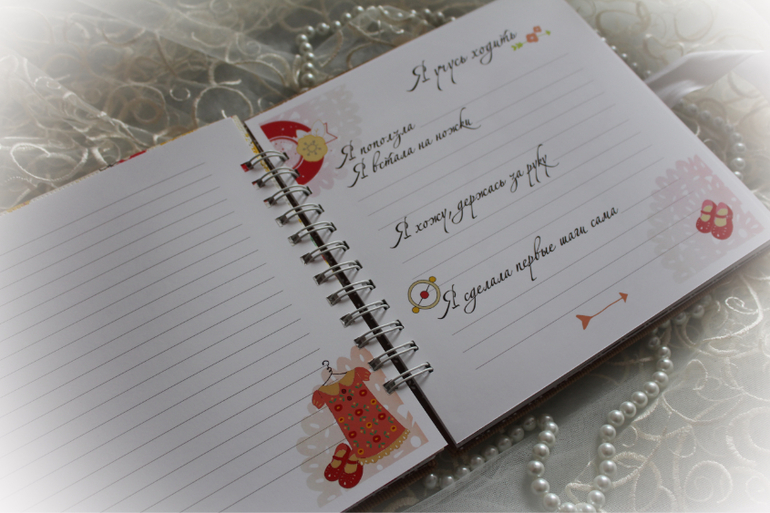 Я учусь ходить
Я поползла
Я встала на ножки
Я хожу, держась за руку
Я сделала первые шаги сама